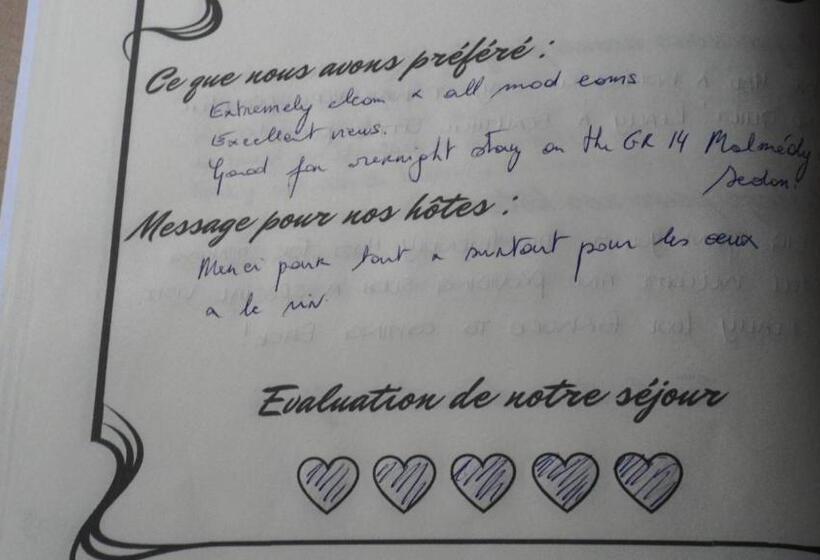 Ce que nous avons préféré :
Extremely clean & all mod coms
Excellent views.
Good for overnight stay on the GR 14 Malmédy
Sedan!
Message pour nos hôtes :
Merci pour tout & surtout pour les oeux
& le vin
Evaluation de notre séjour